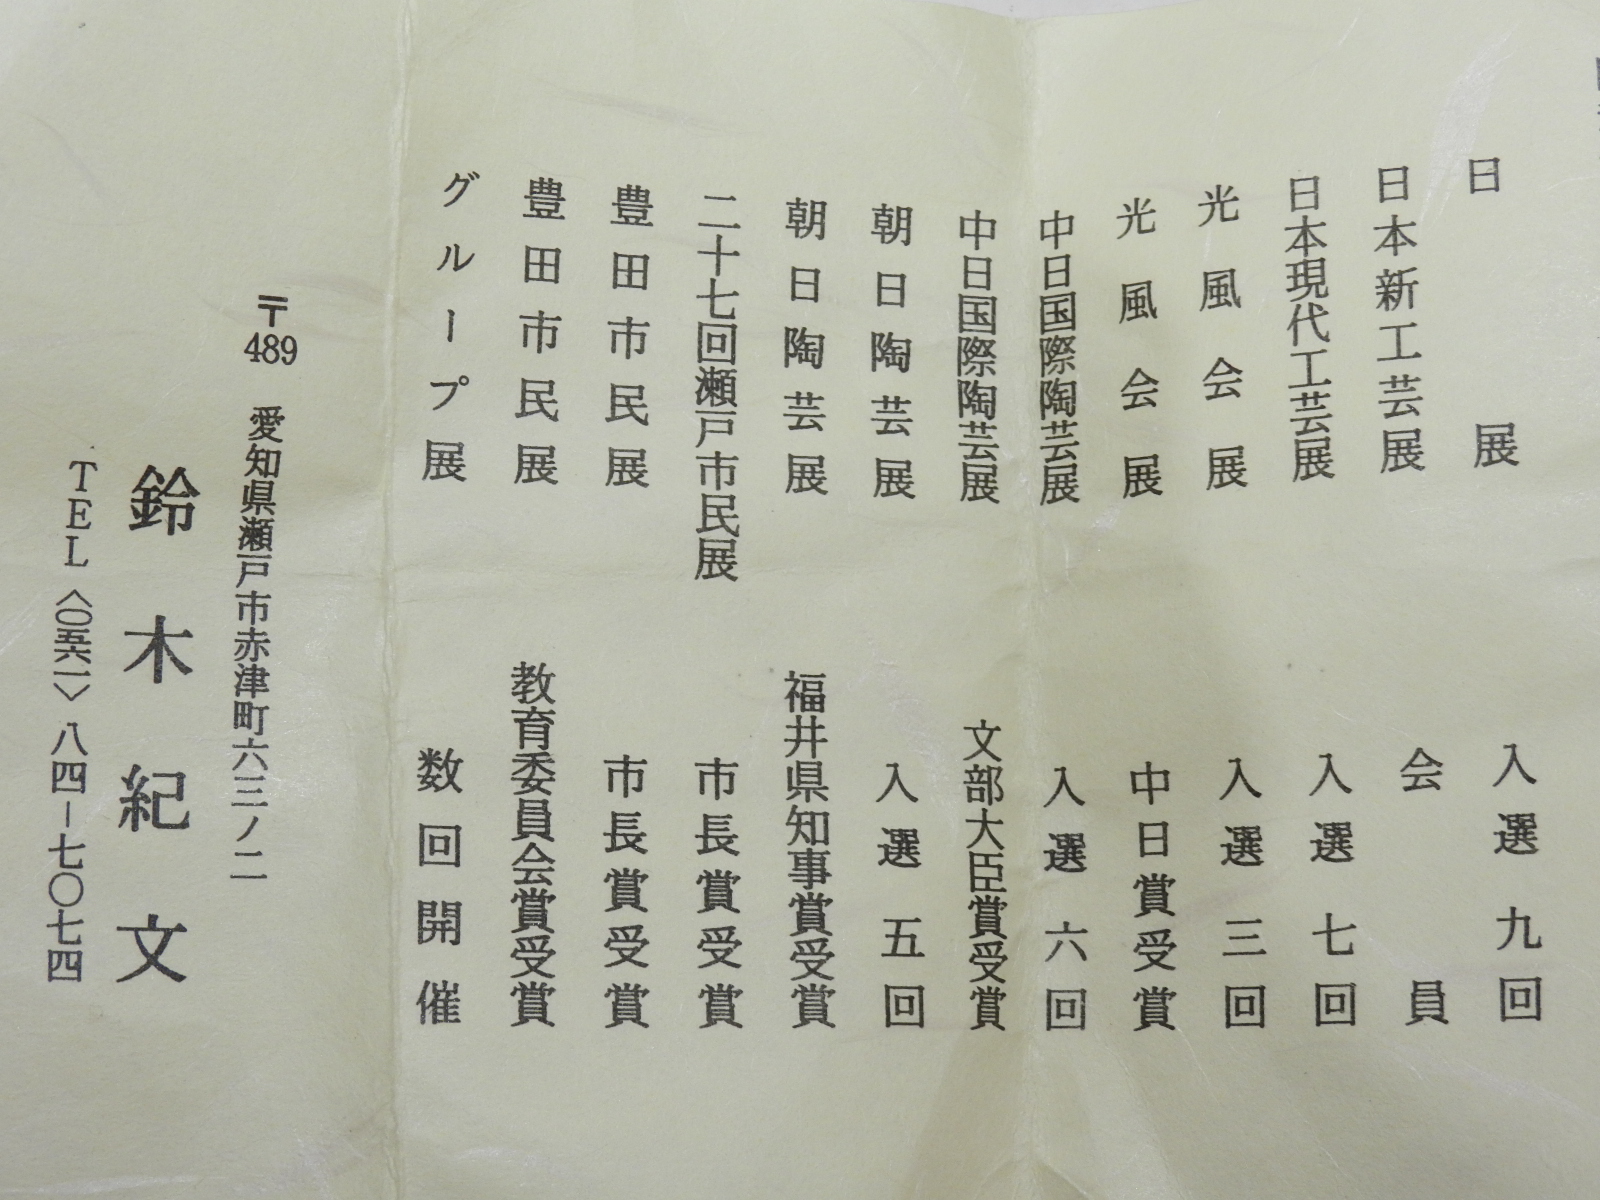 日展　入選九回
日本新工芸展　会員
日本現代工芸展　入選七回
光風会展　入選三回
光風会展　中日賞受賞
中日国際陶芸展　入選六回
中日国際陶芸展　文部大臣賞受賞
朝日陶芸展　入選五回
朝日陶芸展　福井県知事賞受賞
二十七回瀬戸市民展　市長賞受賞
豊田市民展　市長賞受賞
豊田市民展　教育委員会賞受賞
グループ展　数回開催
〒489　愛知県瀬戸市赤津町六三ノ二
鈴木紀文
TEL〈〇五六一〉八四―七〇七四